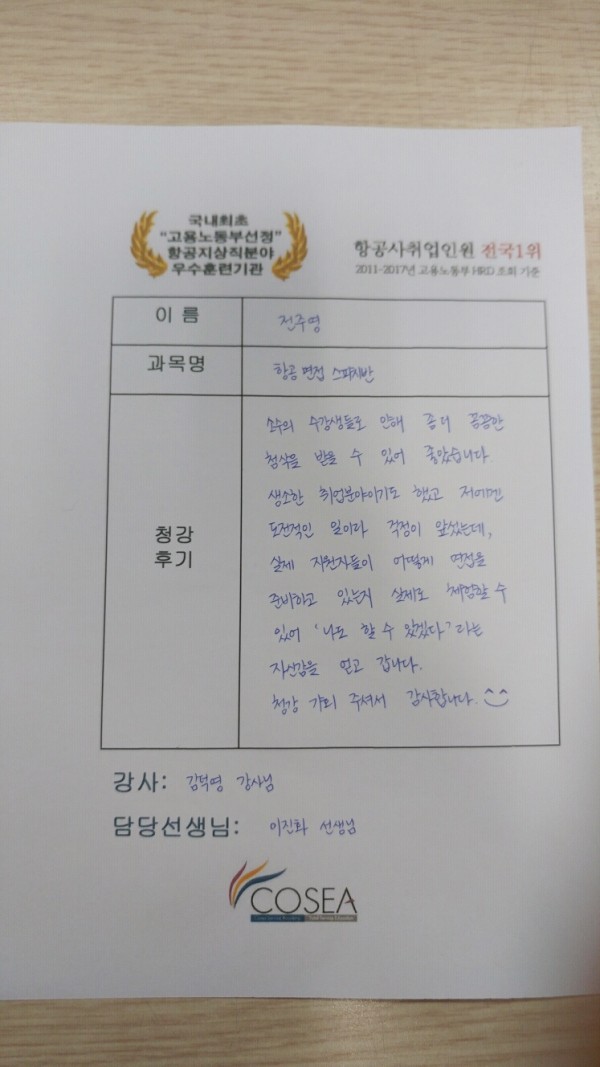 국내최초
"고용노동부선정"
항공지상직분야
우수훈련기관
항공사취업인원 전국1위
2011-2017년 고용노동부 HRD 조회 기준
이 름
전주영
과목명
항공 면접 스파르타반
청강
후기
소수의 수강생들로 인해 좀 더 꼼꼼한
첨삭을 받을 수 있어 좋았습니다.
생소한 취업분야이기도 했고 저에겐
도전적인 일이라 걱정이 앞섰는데,
실제 지원자들이 어떻게 면접을
준비하고 있는지 실제로 체험할 수
있어 '나도 할 수 있겠다' 라는
자신감을 얻고 갑니다.
청강 기회 주셔서 감사합니다. ^^
강사: 김덕영 강사님
담당선생님: 이진화 선생님
COSEA